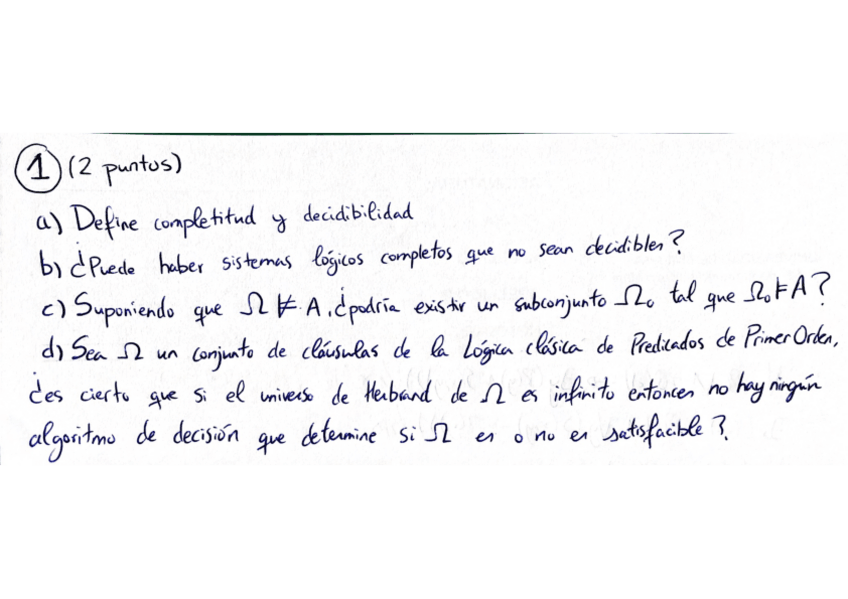 1 (2 puntos)
a) Define completitud y decidibilidad
b) ¿Puede haber sistemas lógicos completos que no sean decidibles?
c) Suponiendo que Ω ⊭ A, ¿podría existir un subconjunto Ω₀ tal que Ω₀ ⊨ A?
d) Sea Ω un conjunto de cláusulas de la Lógica clásica de Predicados de Primer Orden,
¿es cierto que si el universo de Herbrand de Ω es infinito entonces no hay ningún
algoritmo de decisión que determine si Ω es o no es satisfacible?